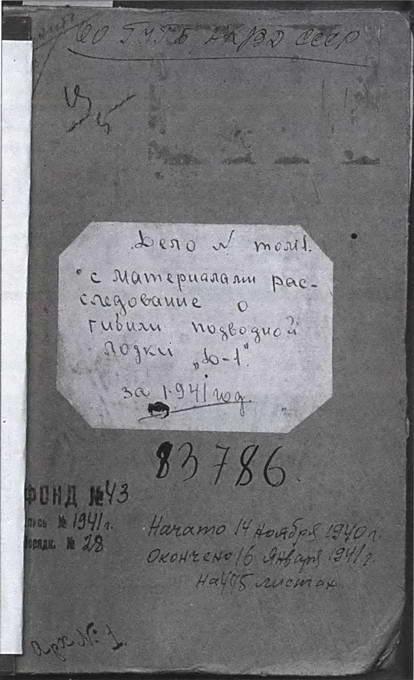 ОО ГУГБ НКВД СССР
Дело № том 1.
с материалами рас-
следование о
гибили подводной
лодки „Д-1"
за 1941 год.
83786.
ФОНД № 43
пись № 1941 г.
Порядк. № 28
Начато 14 ноября 1940 г.
Окончено 16 января 1941 г.
На листах
Арх № 1.